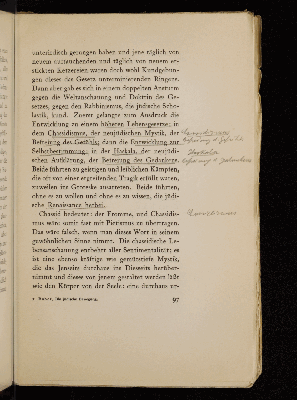 unterirdisch gezogen haben und jene täglich von
neuem auftauchenden und täglich von neuem er-
stickten Ketzereien waren doch wohl Kundgebun-
gen dieses das Gesetz unterminierenden Ringens.
Dann aber gab es sich in einem doppelten Ansturm
gegen die Weltanschauung und Doktrin des Ge-
setzes, gegen den Rabbinismus, die jüdische Scho-
lastik, kund. Zuerst gelangte zum Ausdruck die
Entwicklung zu einem höheren Lebensgesetze, in
dem Chassidismus, der neujüdischen Mystik, der
Befreiung des Gefühls; dann die Entwicklung zur
Selbstbestimmung, in der Haskala, der neujüdi-
schen Aufklärung, der Befreiung des Gedankens.
Beide führten zu geistigen und leiblichen Kämpfen,
die oft von einer ergreifenden Tragik erfüllt waren,
zuweilen ins Groteske ausarteten. Beide führten,
ohne es zu wollen und ohne es zu wissen, die jüdi-
sche Renaissance herbei.
Chassid bedeutet: der Fromme, und Chassidis-
mus wäre somit fast mit Pietismus zu übertragen.
Das wäre falsch, wenn man dieses Wort in seinem
gewöhnlichen Sinne nimmt. Die chassidische Le-
bensanschauung entbehrt aller Sentimentalität; es
ist eine ebenso kräftige wie gemütstiefe Mystik,
die das Jenseits durchaus ins Diesseits herüber-
nimmt und dieses von jenem gestaltet werden läßt
wie den Körper von der Seele: eine durchaus ur-
Buber, Die jüdische Bewegung.
97